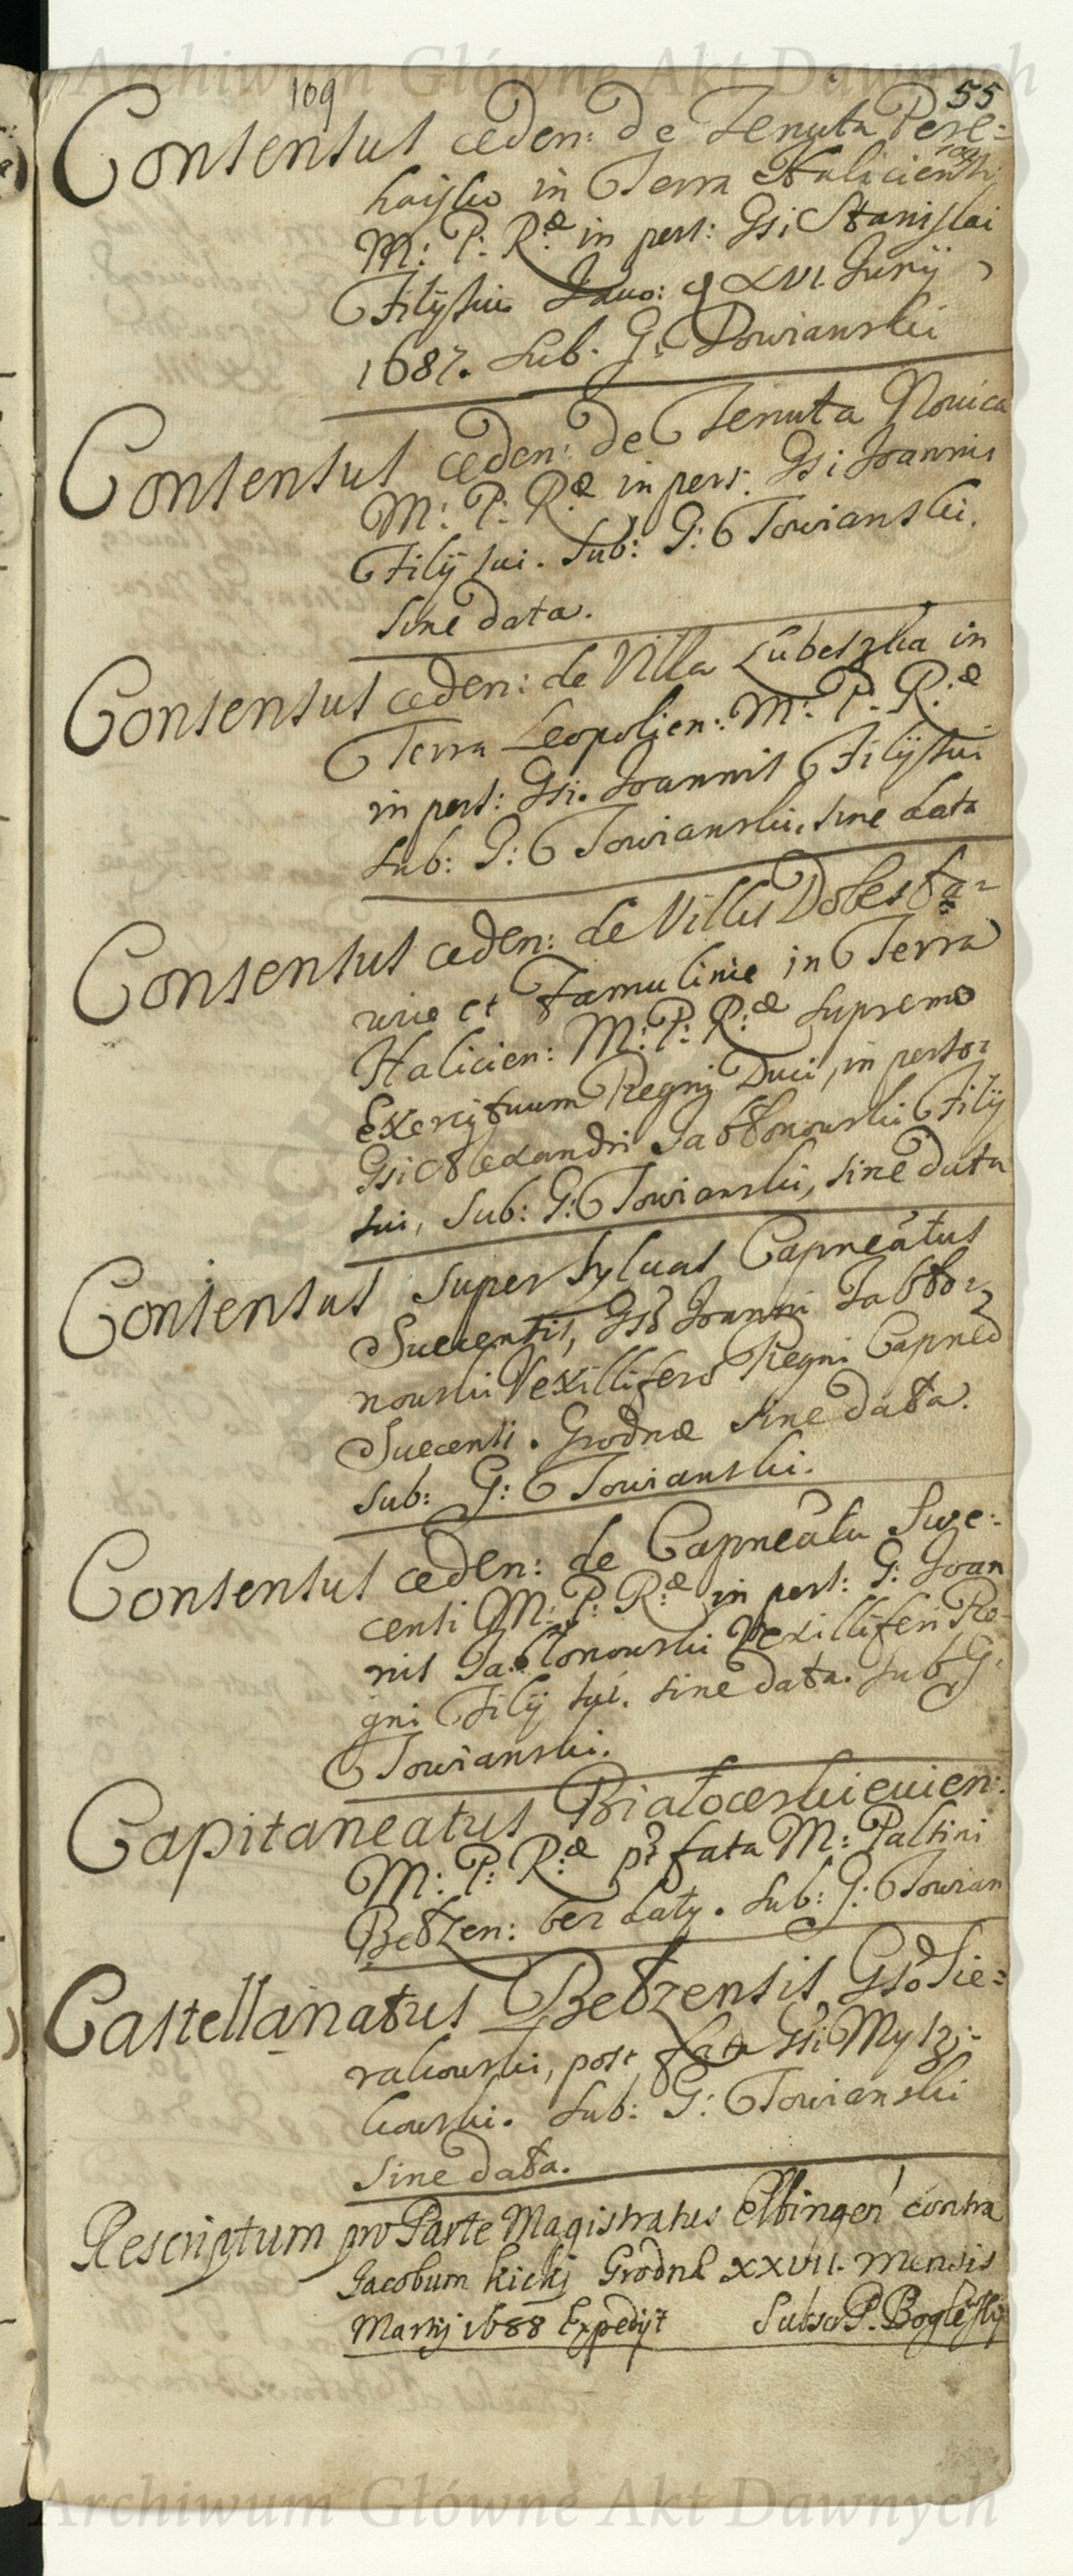 Archiwum Główne Akt Dawnych
109
55
Consensus ceden: de Tenuta Pere=
haisko in Terra Halicien
M: P: R:æ in pers: Gsi Stanislai
Filij sui. Iauo: d XVI. Junij
1687. Sub. G: Towianski
Consensus ceden: de Tenuta Nouica
M: P: R:æ in pers: Gsi Joannis
Filij sui. Sub: G: Towianski.
sine data.
Consensus ceden: de Villa Lubeszka in
Terra Leopolien: M: P: R:æ
in pers: Gsi. Joannis Filij sui
Sub: G: Towianski. sine data
Consensus ceden: de Villis Dobesta=
wie et Tamulinie in Terra
Halicien: M: P: R:æ Supremo
Exercituum Regni Duci, in perso:
Gsi Alexandri Jabłonowski Filij
sui, Sub: G: Towianski, sine data
Consensus super syluas Capneatus
Suecensis, Gso Joanni Jabło=
nowski Vexillifero Regni Capneo
Suecensi. Grodnæ sine data.
Sub: G: Towianski.
Consensus ceden: de Capneatu Swe=
censi M: P: R:æ in pers: G: Joan
nis Jabłonowski Vexilliferi Re=
gni Filij sui. sine data. Sub G:
Towianski.
Capitaneatus Białocerkieuien:
M: P: R:æ pt fata M: Paltini
Bełzen: bez daty. Sub: G: Towian
Castellanatus Bełzensis Gso Sie=
rakowski, post fata Gsi Myszj=
kowski. Sub: G: Towianski
Sine data.
Rescriptum pro Parte Magistratus Elbingen contra
Jacobum Kickj Grodnæ XXVII. Mensis
Martij 1688 Expedijt Subscr P. Boglewskj
Archiwum Główne Akt Dawnych